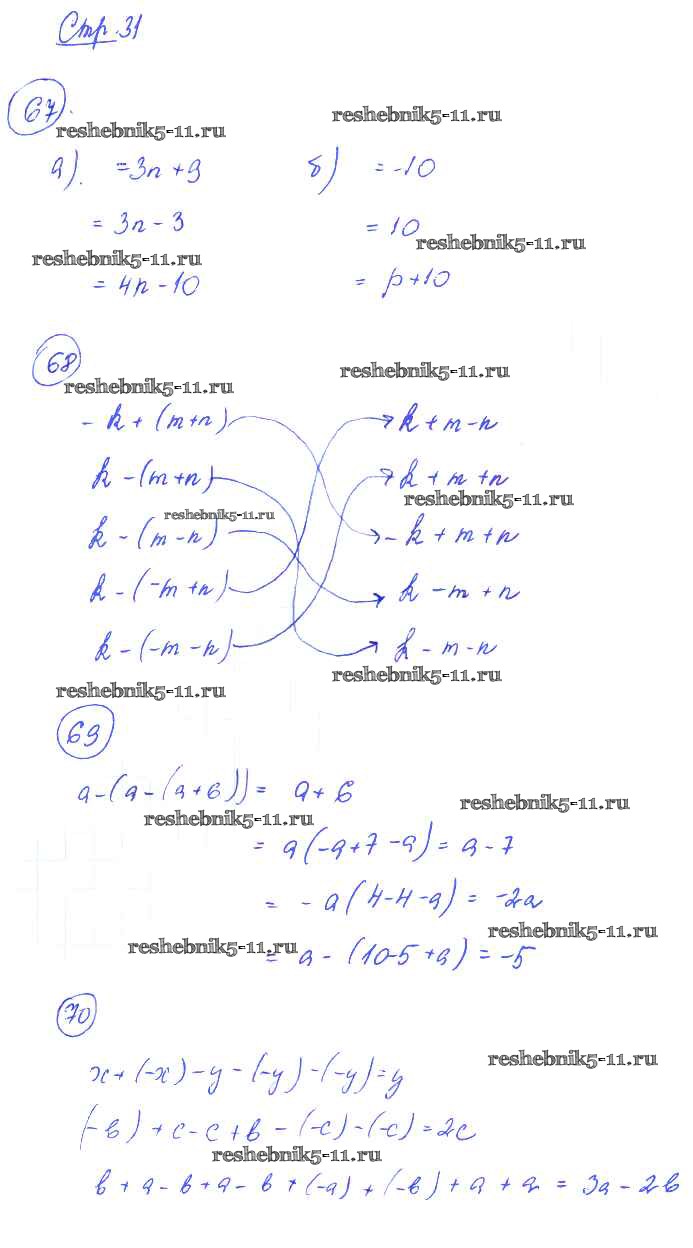 Стр. 31
67.
reshebnik5-11.ru reshebnik5-11.ru
а). =3n+9 б) =-10
= 3n-3 = 10
reshebnik5-11.ru reshebnik5-11.ru
= 4n-10 = p+10
68
reshebnik5-11.ru reshebnik5-11.ru
- k + (m+n) k + m - n
k - (m+n) k + m + n
reshebnik5-11.ru reshebnik5-11.ru
k - (m-n) - k + m + n
k - (-m+n) k - m + n
k - (-m-n) k - m - n
reshebnik5-11.ru reshebnik5-11.ru
69
a-(a-(a+6)) = a+6
reshebnik5-11.ru reshebnik5-11.ru
= a(-a+7-a) = a-7
= -a(4-4-a) = -2a
reshebnik5-11.ru reshebnik5-11.ru
= a-(10-5+a) = -5
70
reshebnik5-11.ru
x+(-x)-y-(-y)-(-y)=y
(-в)+c-c+в-(-c)-(-c)=2c
reshebnik5-11.ru
в+a-в+a-в+(-a)+(-в)+a+a = 3a-2в